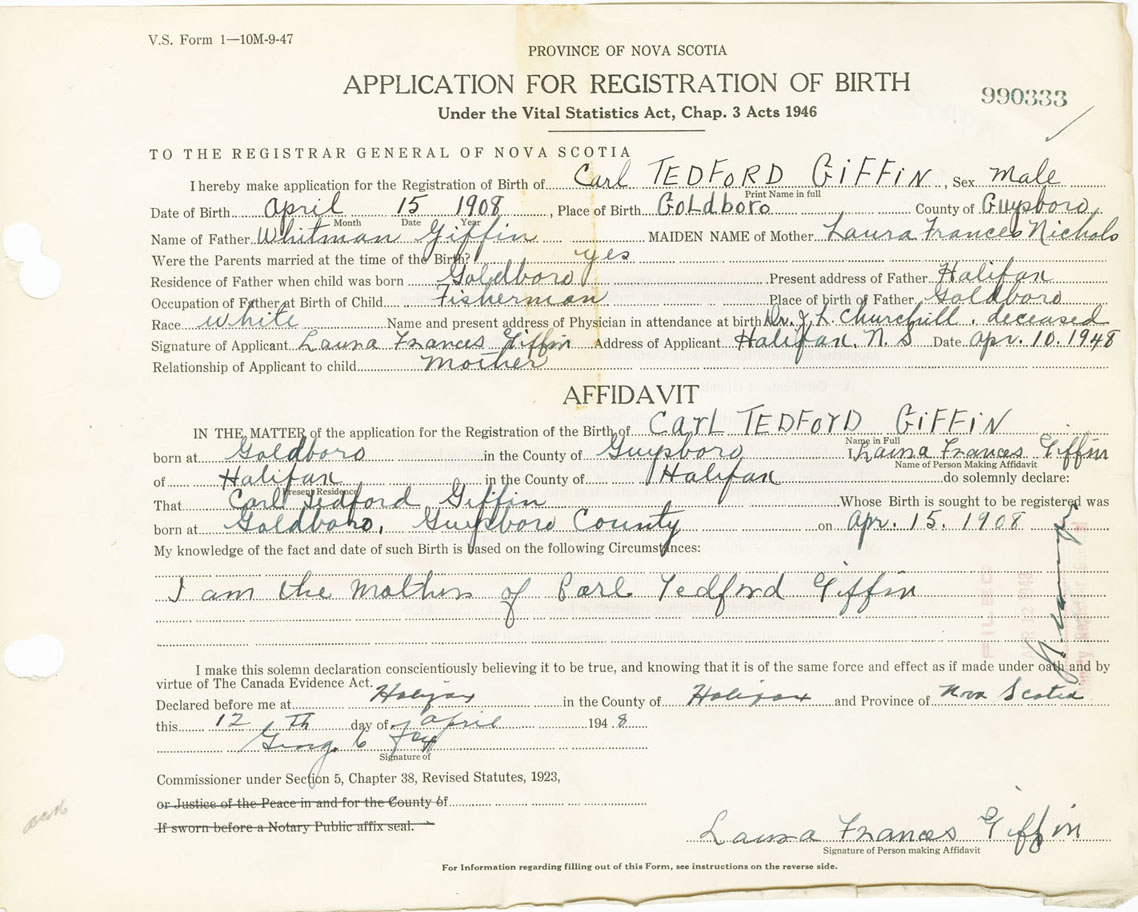 V.S. Form 1—10M-9-47
PROVINCE OF NOVA SCOTIA
APPLICATION FOR REGISTRATION OF BIRTH
990333
Under the Vital Statistics Act, Chap. 3 Acts 1946
TO THE REGISTRAR GENERAL OF NOVA SCOTIA
I hereby make application for the Registration of Birth of Carl TEDFORD GIFFIN, Sex male
Print Name in full
Date of Birth April 15 1908, Place of Birth GOLdboro County of Guysboro
Month Date Year
Name of Father Whitman Giffin MAIDEN NAME of Mother Laura Frances Nichols
Were the Parents married at the time of the Birth? yes
Residence of Father when child was born Goldboro Present address of Father Halifax
Occupation of Father at Birth of Child Fisherman Place of birth of Father Goldboro
Race white Name and present address of Physician in attendance at birth Dr. J. L. Churchill. deceased
Signature of Applicant Laura Frances Giffin Address of Applicant Halifax. N. S Date apr. 10. 1948
Relationship of Applicant to child mother
AFFIDAVIT
IN THE MATTER of the application for the Registration of the Birth of CArL TEDFOrD GIFFIN
Name in Full
born at Goldboro in the County of Guysboro I, Laura Frances Giffin
Name of Person Making Affidavit
of Halifax in the County of Halifax do solemnly declare:
Present Residence
That Carl Tedford Giffin Whose Birth is sought to be registered was
born at Goldboro, Guysboro County on apr. 15. 1908
My knowledge of the fact and date of such Birth is based on the following Circumstances:
I am the mother of Carl Tedford Giffin
FILED
APR 12 1948
I make this solemn declaration conscientiously believing it to be true, and knowing that it is of the same force and effect as if made under oath and by
virtue of The Canada Evidence Act.
Declared before me at Halifax in the County of Halifax and Province of Nova Scotia
this 12 Th day of april 1948
Signature of
Commissioner under Section 5, Chapter 38, Revised Statutes, 1923,
or Justice of the Peace in and for the County of
If sworn before a Notary Public affix seal.
Laura Frances Giffin
Signature of Person making Affidavit
For Information regarding filling out of this Form, see instructions on the reverse side.